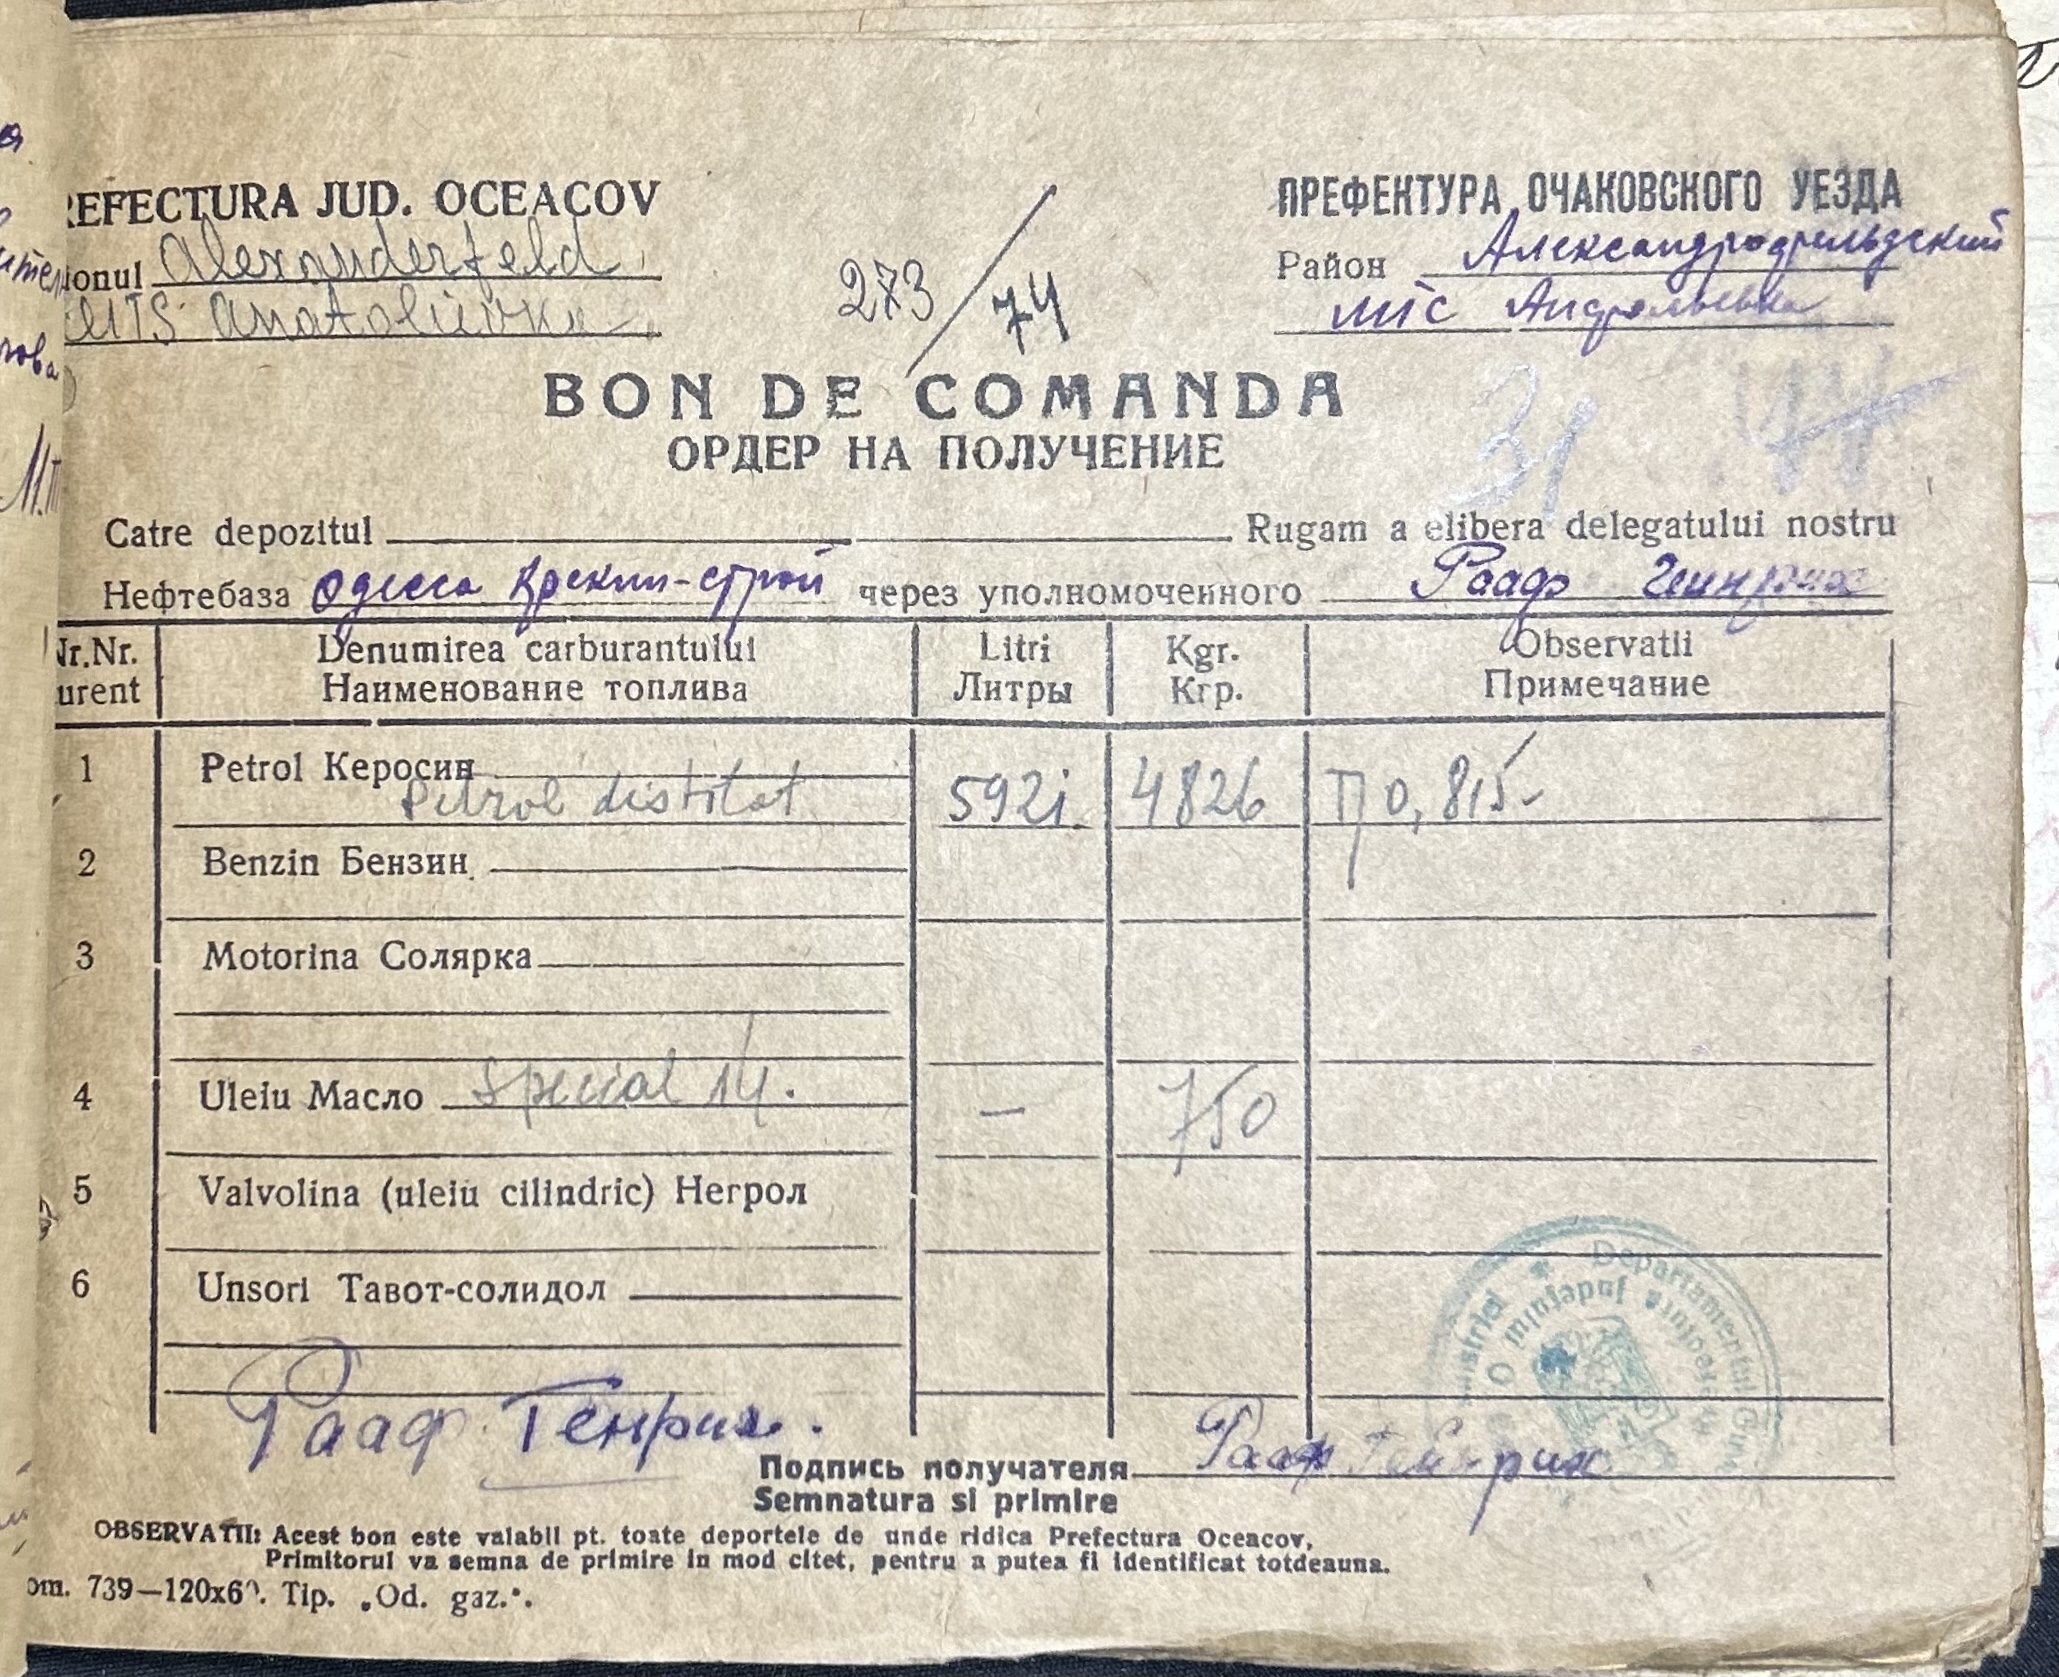 REFECTURA JUD. OCEACOV
ПРЕФЕКТУРА ОЧАКОВСКОГО УЕЗДА
ionul Alexanderfeld
Район Александрфельдский
MTS
мтс
273/74
BON DE COMANDA
ОРДЕР НА ПОЛУЧЕНИЕ
31 44
Catre depozitul Rugam a elibera delegatului nostru
Нефтебаза Одесса Крекин-строй через уполномоченного Рааф Генрих
Nr.Nr. Denumirea carburantului Litri Kgr. Observatii
urent Наименование топлива Литры Кгр. Примечание
1 Petrol Керосин
Petrol distilat 5921 4826 П 0,815
2 Benzin Бензин
3 Motorina Солярка
4 Uleiu Масло Special 14. — 750
5 Valvolina (uleiu cilindric) Негрол
6 Unsori Тавот-солидол
Рааф Генрих.
Подпись получателя Рааф Генрих
Semnatura si primire
OBSERVATII: Acest bon este valabil pt. toate deportele de unde ridica Prefectura Oceacov,
Primitorul va semna de primire in mod citet, pentru a putea fi identificat totdeauna.
om. 739—120x60. Tip. „Od. gaz.".
Departamentul
judeţului O